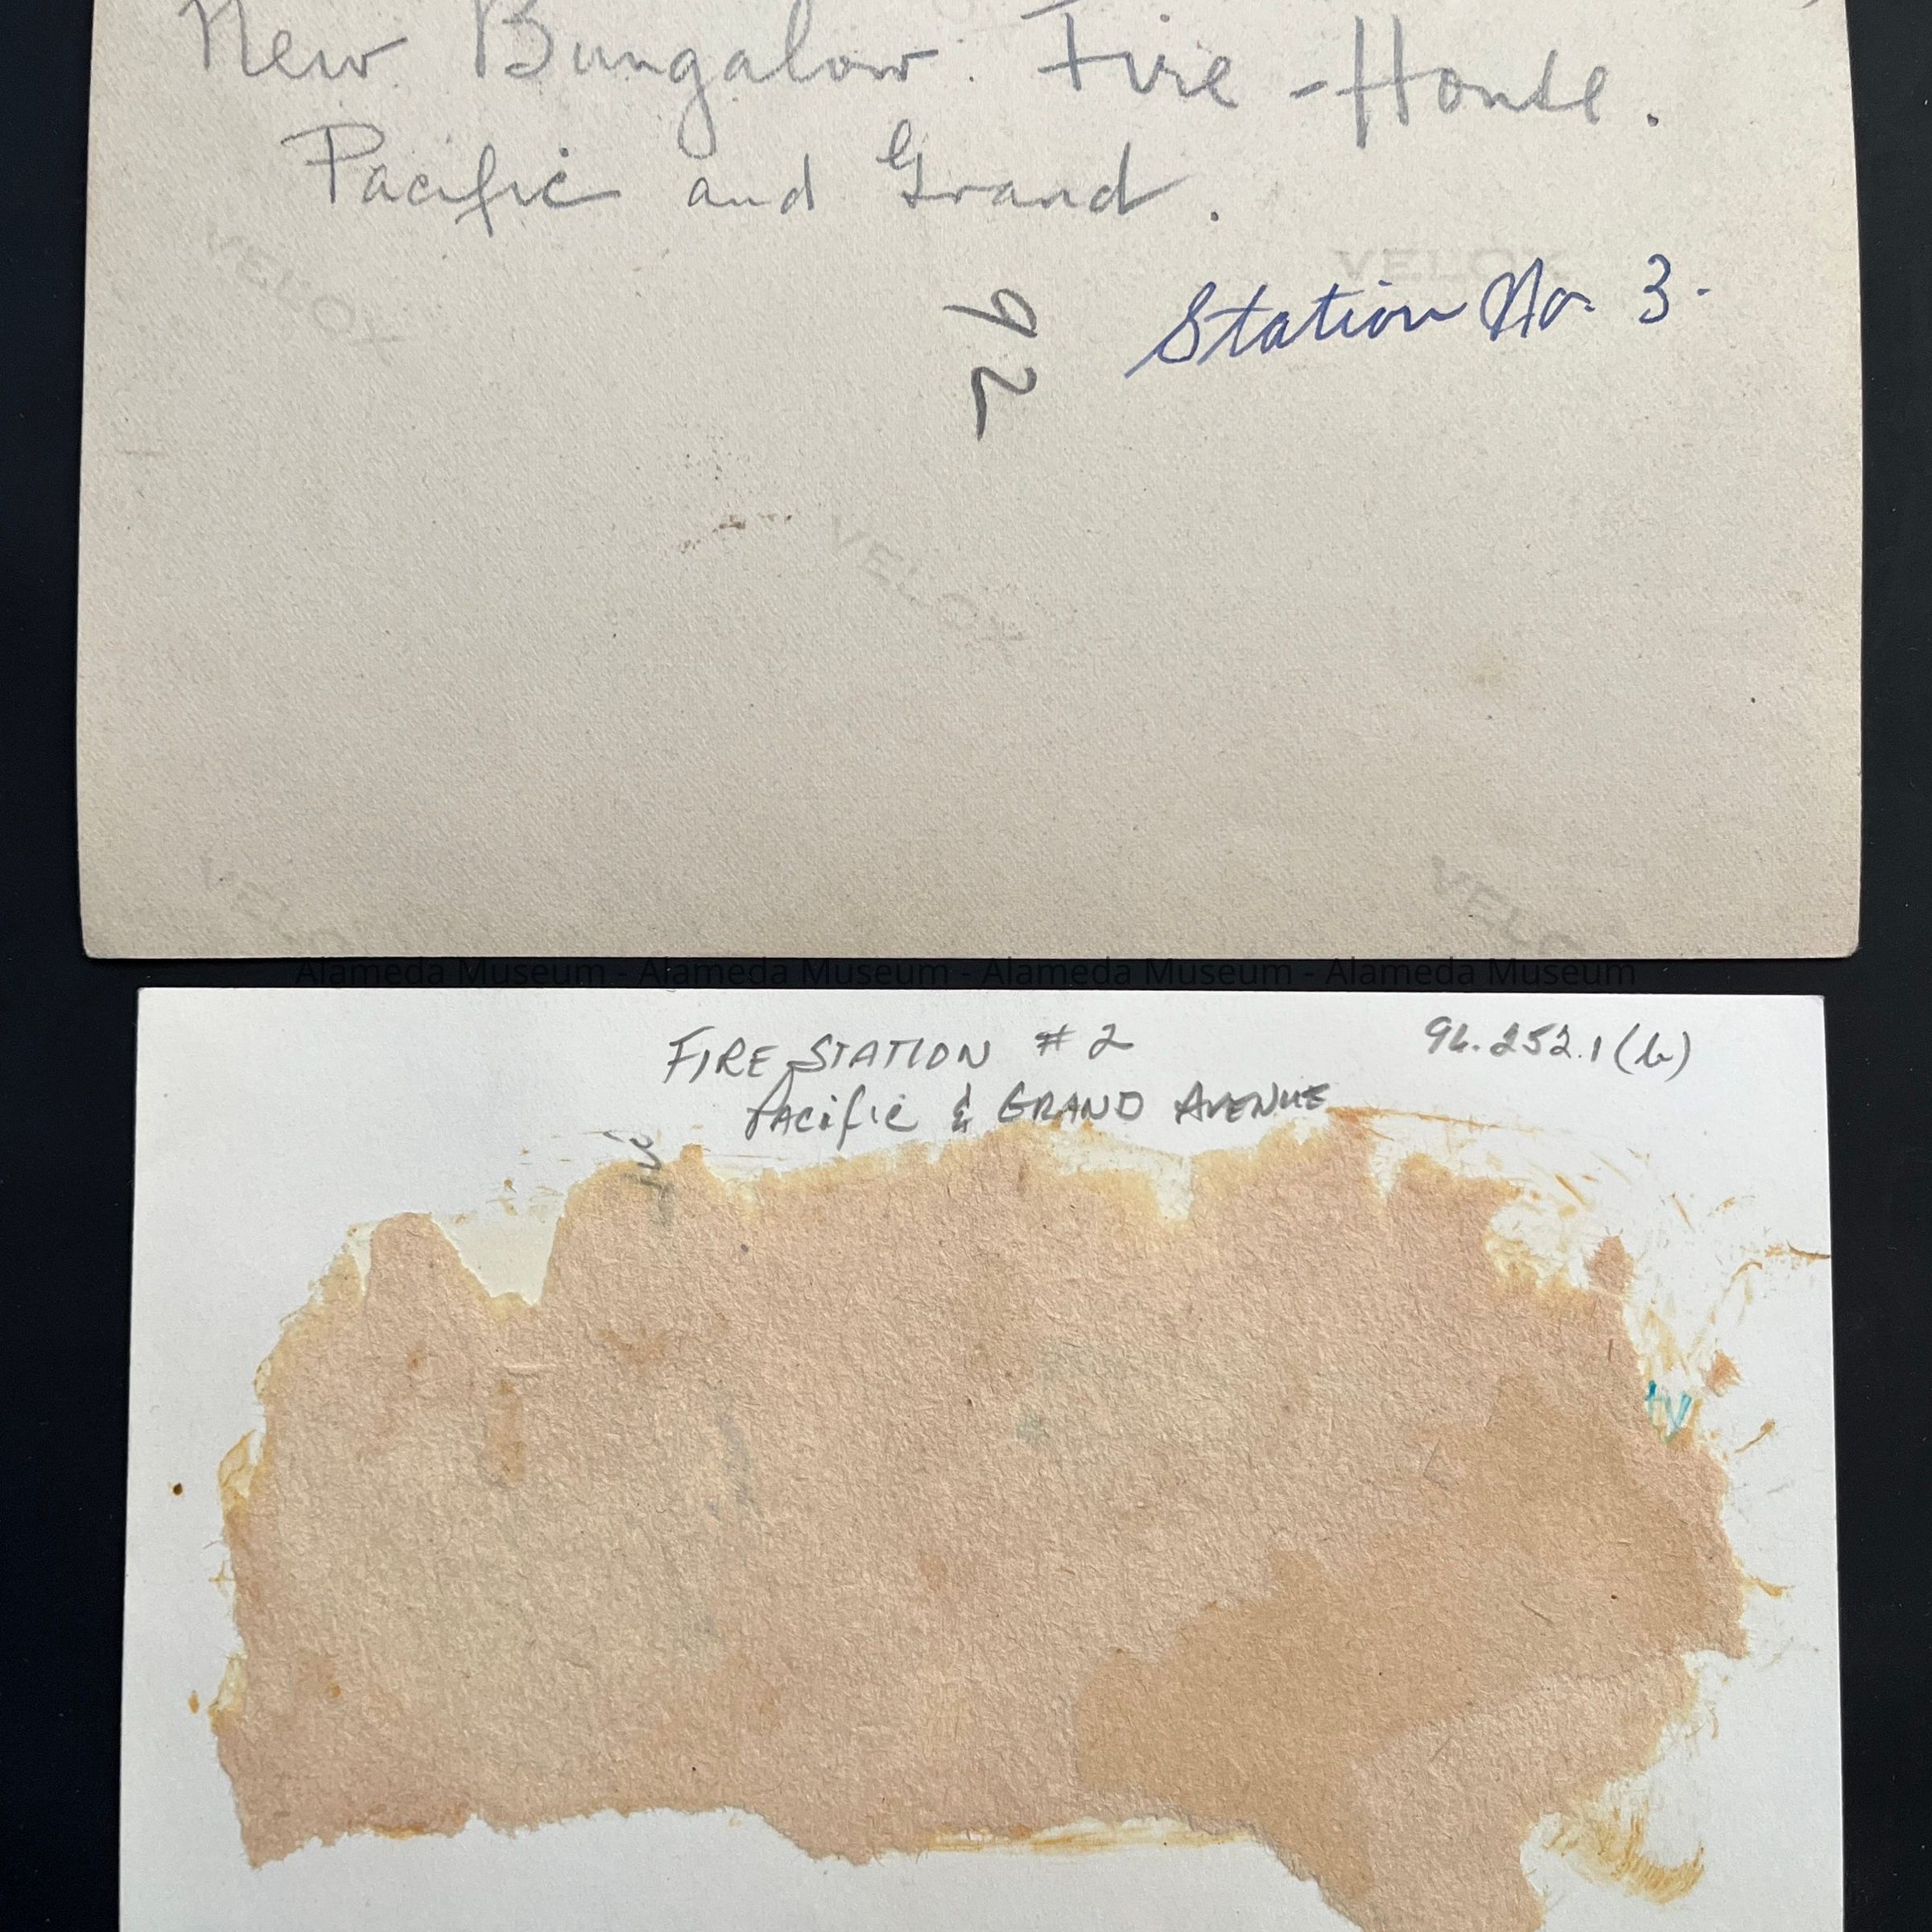 New Bungalow. Fire-House.
Pacific and Grand.
VELOX
VELOX
Station No. 3.
92
VELOX
VELO
VELO
Alameda Museum - Alameda Museum - Alameda Museum - Alameda Museum
FIRE STATION #2
96.252.1(b)
Pacific & GRAND AVENUE
ty